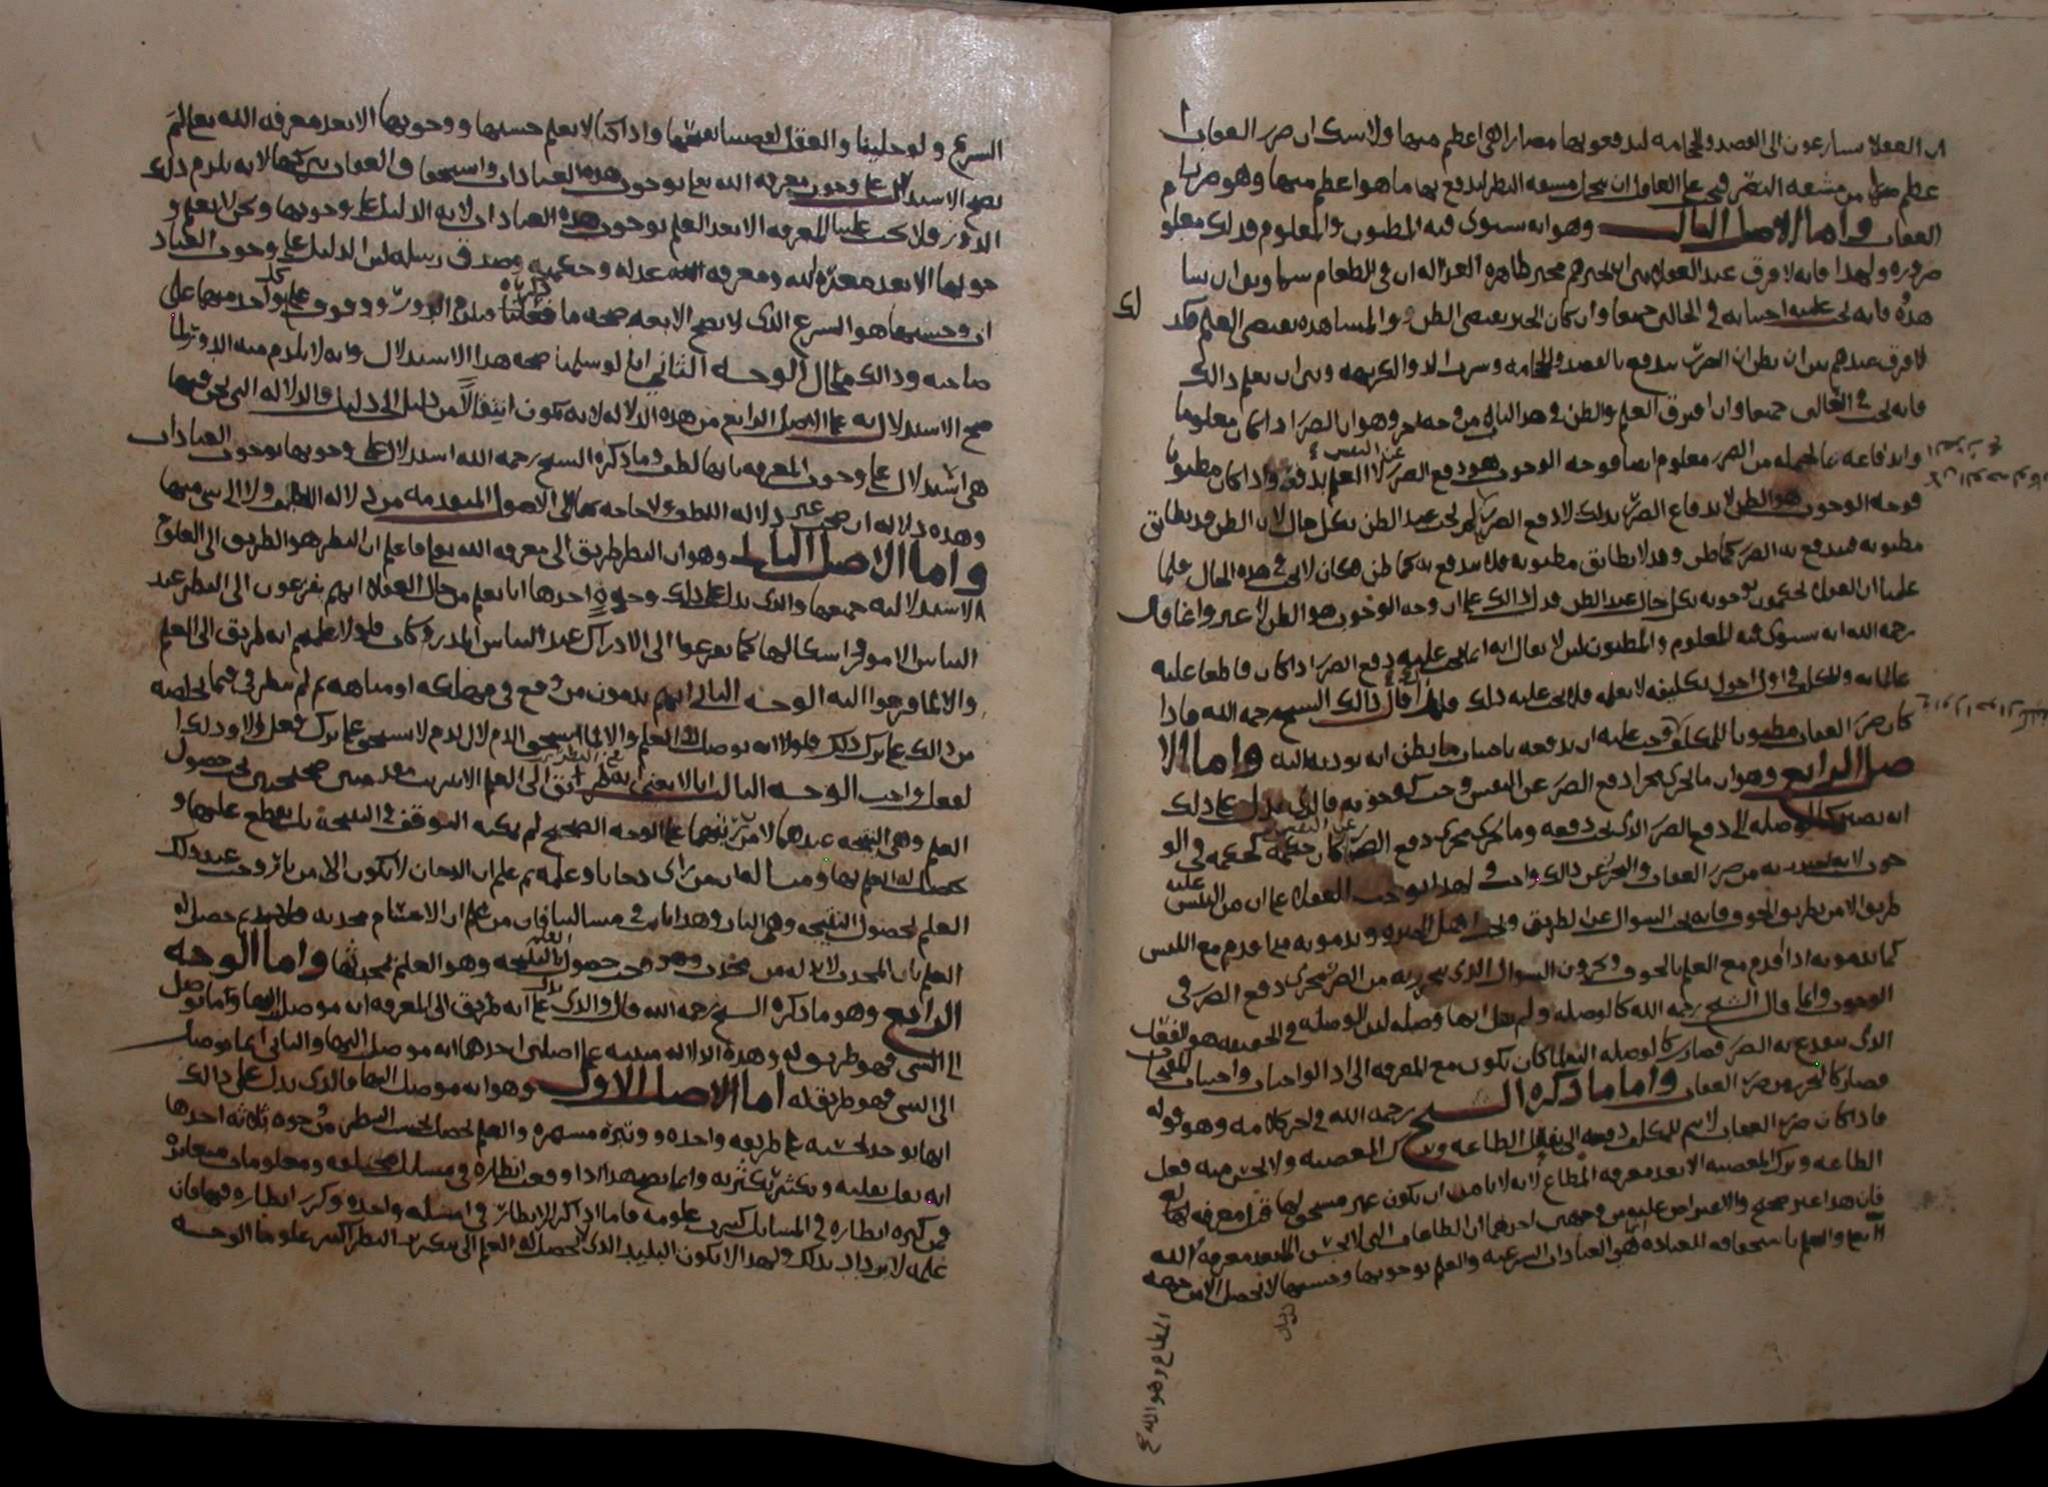 ان العقلا يسارعون الى الفصد والحجامه ليدفعوا بها مضارا هي اعظم منها ولا شك ان ضرر العقاب ا
عظم من مشقه النظر فيجب على العاقل ان يتحمل مشقه النظر ليدفع بها ما هو اعظم منها وهو ضرر
العقاب واما الاصل الثالث وهو انه يستوى فيه المظنون والمعلوم فذلك معلو
ضروره ولهذا فانه لا فرق عند العقلا بين ان يخبرهم مخبر ظاهره العداله ان في الطعام سما وبين ان يشا
هدوه فانه يجب عليه اجتنابه في الحالين جميعا وان كان الخبر يقتضى الظن والمشاهده يقتضى العلم
لا فرق عندهم بين ان يظن ان الضرر يندفع بالفصد والحجامه وشرب الدوا الكريهه وبين ان يعلم ذالك
فانه يجب في الحالين جميعا وان افترق العلم والظن في هذا الباب من وجه اخر وهو ان الضرر اذا كان معلوما
واندفاعه بالجمله من الضرر معلوم ايضا فوجه الوجوب هو دفع الضرر عن النفس لا العلم بدفعه واذا كان مظنونا
فوجه الوجوب هو الظن لاندفاع الضرر بذلك لا دفع الضرر يجب عند الظن بكل حال لان الظن قد يطابق
مظنونه فيندفع به الضرر كما ظن وقد لا يطابق مظنونه فلا يندفع به كما ظن فكان لا يجب في هذه الحال فلما
علمنا ان العقلا يحكمون بوجوبه بكل حال عند الظن دل ذالك على ان وجه الوجوب هو الظن لا غير وانما قال
رحمه الله انه يستوى فيه المعلوم والمظنون لئن لا يقال انه انما يجب عليه دفع الضرر اذا كان قاطعا عليه
عالما به والمكلف في اول احوال تكليفه لا يعلمه فلا يجب عليه ذلك فلهذا قال ذالك الشيخ رحمه الله فاذا
كان ضرر العقاب مظنونا للمكلف وجب عليه ان يدفعه باحسان ما يظن انه يوديه اليه واما الا
صل الرابع وهو ان ما يجرى مجرى دفع الضرر عن النفس وجب كوجوبه فالذى يدل على ذلك
انه يصير كالوصله الى دفع الضرر الذى يجب دفعه وما يجرى مجرى دفع الضرر عن النفس كان حكمه كحكمه في الو
جوب لانه من ضرر العقاب والتحرز عن ذالك واجب ولهذا يوجب العقلا على ان من التبس عليه
طريق الامن بطريق الخوف فانه يجب السوال عن الطريق ويذمونه متى اقدم مع اللبس
كما يذمونه اذا اقدم مع العلم بالخوف ويجرون السوال الذى يتحرز به من الضرر مجرى دفع الضرر في
الوجوب وانما قال الشيخ رحمه الله كالوصله ولم يقل انها وصله لان الوصله في الحقيقه هو الفعل
الذى يندفع به الضرر فصارت كالوصله كان يكون مع المعرفه الى اد الواجبات واجتناب المقبحات
فصار كالتحرز من ضرر العقاب واما ما ذكره الشيخ رحمه الله في اخر كلامه وهو قوله
فاذا كان ضرر العقاب لازم للمكلف دفعه الى فعل الطاعه وترك المعصيه ولا يحسن منه فعل
الطاعه وترك المعصيه الا بعد معرفه المطاع لانه لا يامن ان يكون غير مستحق لها قبل معرفه لها
فان هذا غير صحيح والاعتراض عليه من وجهين احدهما ان الطاعات التي لا يحسن الا بعد معرفه الله
تعالى والعلم باستحقاقه للعباده هي العبادات الشرعيه والعلم بوجوبها وحسنها لا يحصل الا من جهه
الشرع ولو خلينا والعقل لقضينا بقبحها واذا كنا لا نعلم حسنها ووجوبها الا بعد معرفه الله تعالى لم
يصح الاستدلال على وجوب معرفه الله تعالى بوجوب هذه العبادات واستحقاق العقاب بتركها لانه يلزم ذلك
الدور فلا يجب علينا المعرفه الا بعد العلم بوجوب هذه العبادات لانه الدليل على وجوبها ونحن لا نعلم و
جوبها الا بعد معرفه الله ومعرفه عدله وحكمته وصدق رسله لئن الدليل على وجوب العباد
ات وحسنها هو الشرع الذى لا تصح الا بعد صحه ما ذكرناه فيلزم الدور ووقوف كل واحد منهما على
صاحبه وذالك محال الوجه الثاني انا لو سلمنا صحه هذا الاستدلال وانه لا يلزم منه الدور لما
صح الاستدلال به على الاصل الرابع من هذه الدلاله لانه يكون انتقالا من دليل الى دليل فالدلاله التي نحن فيها
هي استدلال على وجوب المعرفه بانها لطف وما ذكره الشيخ رحمه الله استدلال على وجوبها بوجوب العبادات
وهذه دلاله اخرى غير دلاله اللطف ولا حاجه بها الى الاصول المتقدمه من دلاله اللطف ولا الى شي منها
واما الاصل الثاني وهو ان النظر طريق الى معرفه الله تعالى فاعلم ان النظر هو الطريق الى العلوم
الاستدلاليه جميعها والذى يدل على ذلك وجوه احدها انا نعلم من حال العقلا انهم يفزعون الى النظر عند
التباس الامور واشكالها كما يفزعوا الى الادراك عند التباس المدركات فلولا علمهم انه طريق الى العلم
والا لما فزعوا اليه الوجه الثاني انهم يذمون من وقع في مهلكه او متاهه ثم لم ينظر في ما يخلصه
من ذالك على ترك ذلك فلولا انه يوصل الى العلم والا لما استحق الذم لان الذم لا يستحق على ترك فعل الا وذلك ا
لفعل واجب الوجه الثالث انا لا نعنى بالنظر طريق الى العلم الا ترتيب مقدمتين صحيحتين يجب حصول
العلم وهي النتيجه عندهما لامر ترتيبهما على الوجه الصحيح لم يمكنه التوقف في النتيجة بل يقطع عليها و
يحصل له العلم بها ومثاله ان من راى دخانا وعلمه ثم علم ان الدخان لا يكون الا من نار وجب عند ذلك
العلم لحصول النتيجه وهي النار وهذا ثابت في مسالتنا فان من علم ان الاجسام محدثه حصل له
العلم بان المحدث لا بد له من محدث وجب حصول العلم بالنتيجه وهو العلم بمحدثها واما الوجه
الرابع وهو ما ذكره الشيخ رحمه الله قال والذى يدل على انه طريق الى المعرفه انه موصل اليها وما يوصل
الى الشى فهو طريق له وهذه الدلاله مبنيه على اصلين احدهما انه موصل اليها والثاني ان ما يوصل
الى الشى فهو طريق له اما الاصل الاول وهو انه موصل اليها فالذى يدل على ذالك
انها توجد بحسبه على طريقه واحده ووتيره مستمره والعلم يحصل بحسب النظر من وجوه ثلاثه احدها
انه يقل بقلته ويكثر بكثرته وانما يصح هذا اذا وقعت انظاره في مسائل مختلفه ومعلومات متغايره
فمن كثره انظاره في المسائل كثرت علومه فاما اذا كرر الانظار في مسئله واحده وكرر انظاره فيها فان
علمه لا يزداد بذلك ولهذا لا يكون البليد الذى لا يحصل له العلم الا بتكرير النظر اكثر علوما الوجه